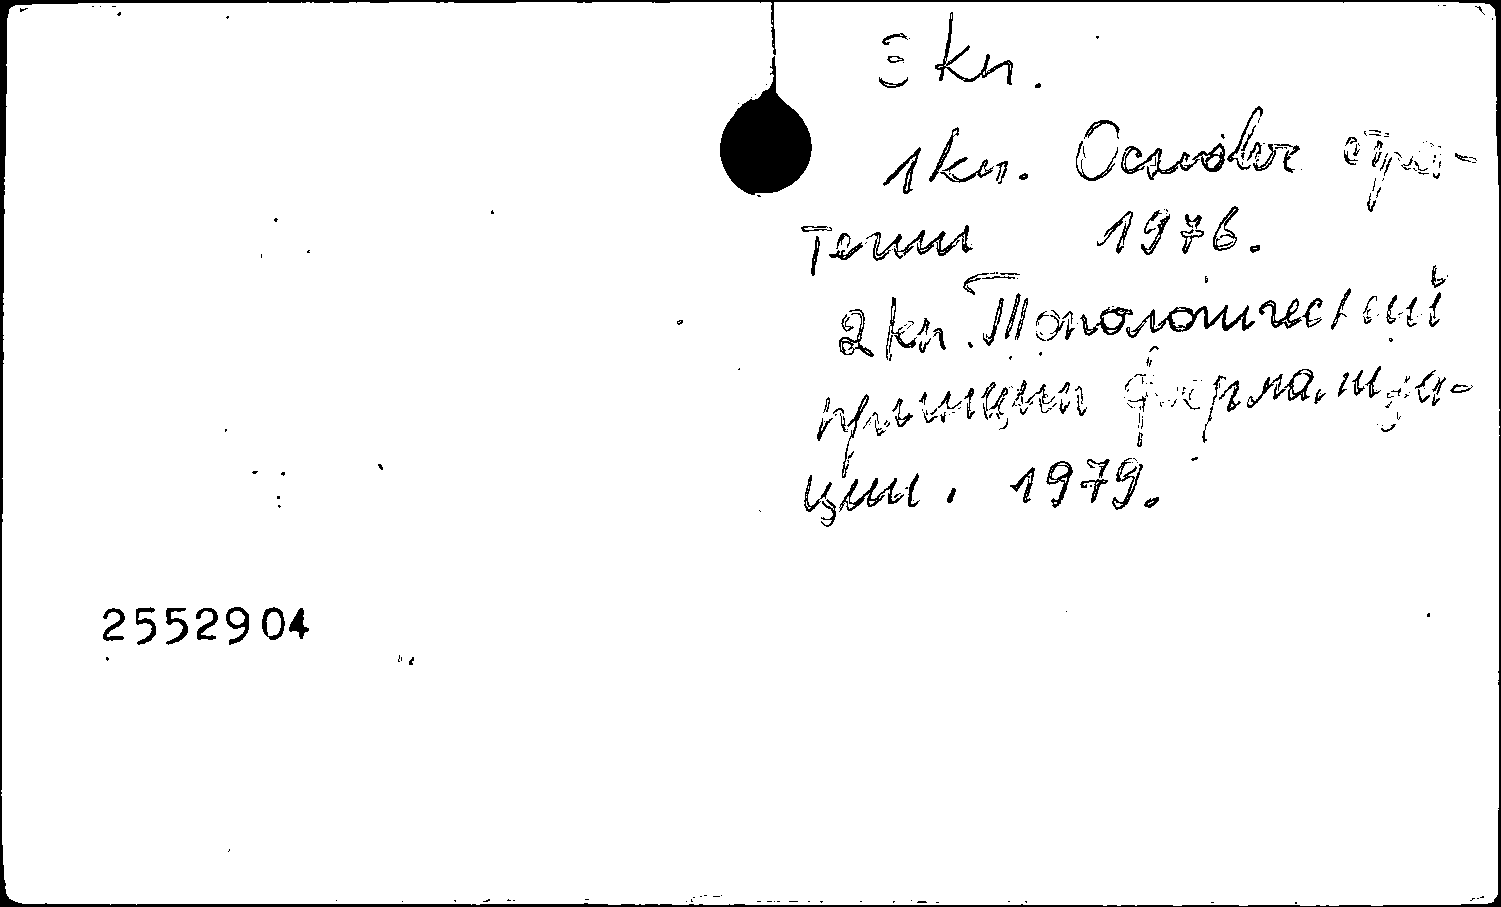 кн.
1 кн. Основы стра-
тегии 1976.
2 кн. Топологический
принцип формализа-
ции. 1979.
2552904